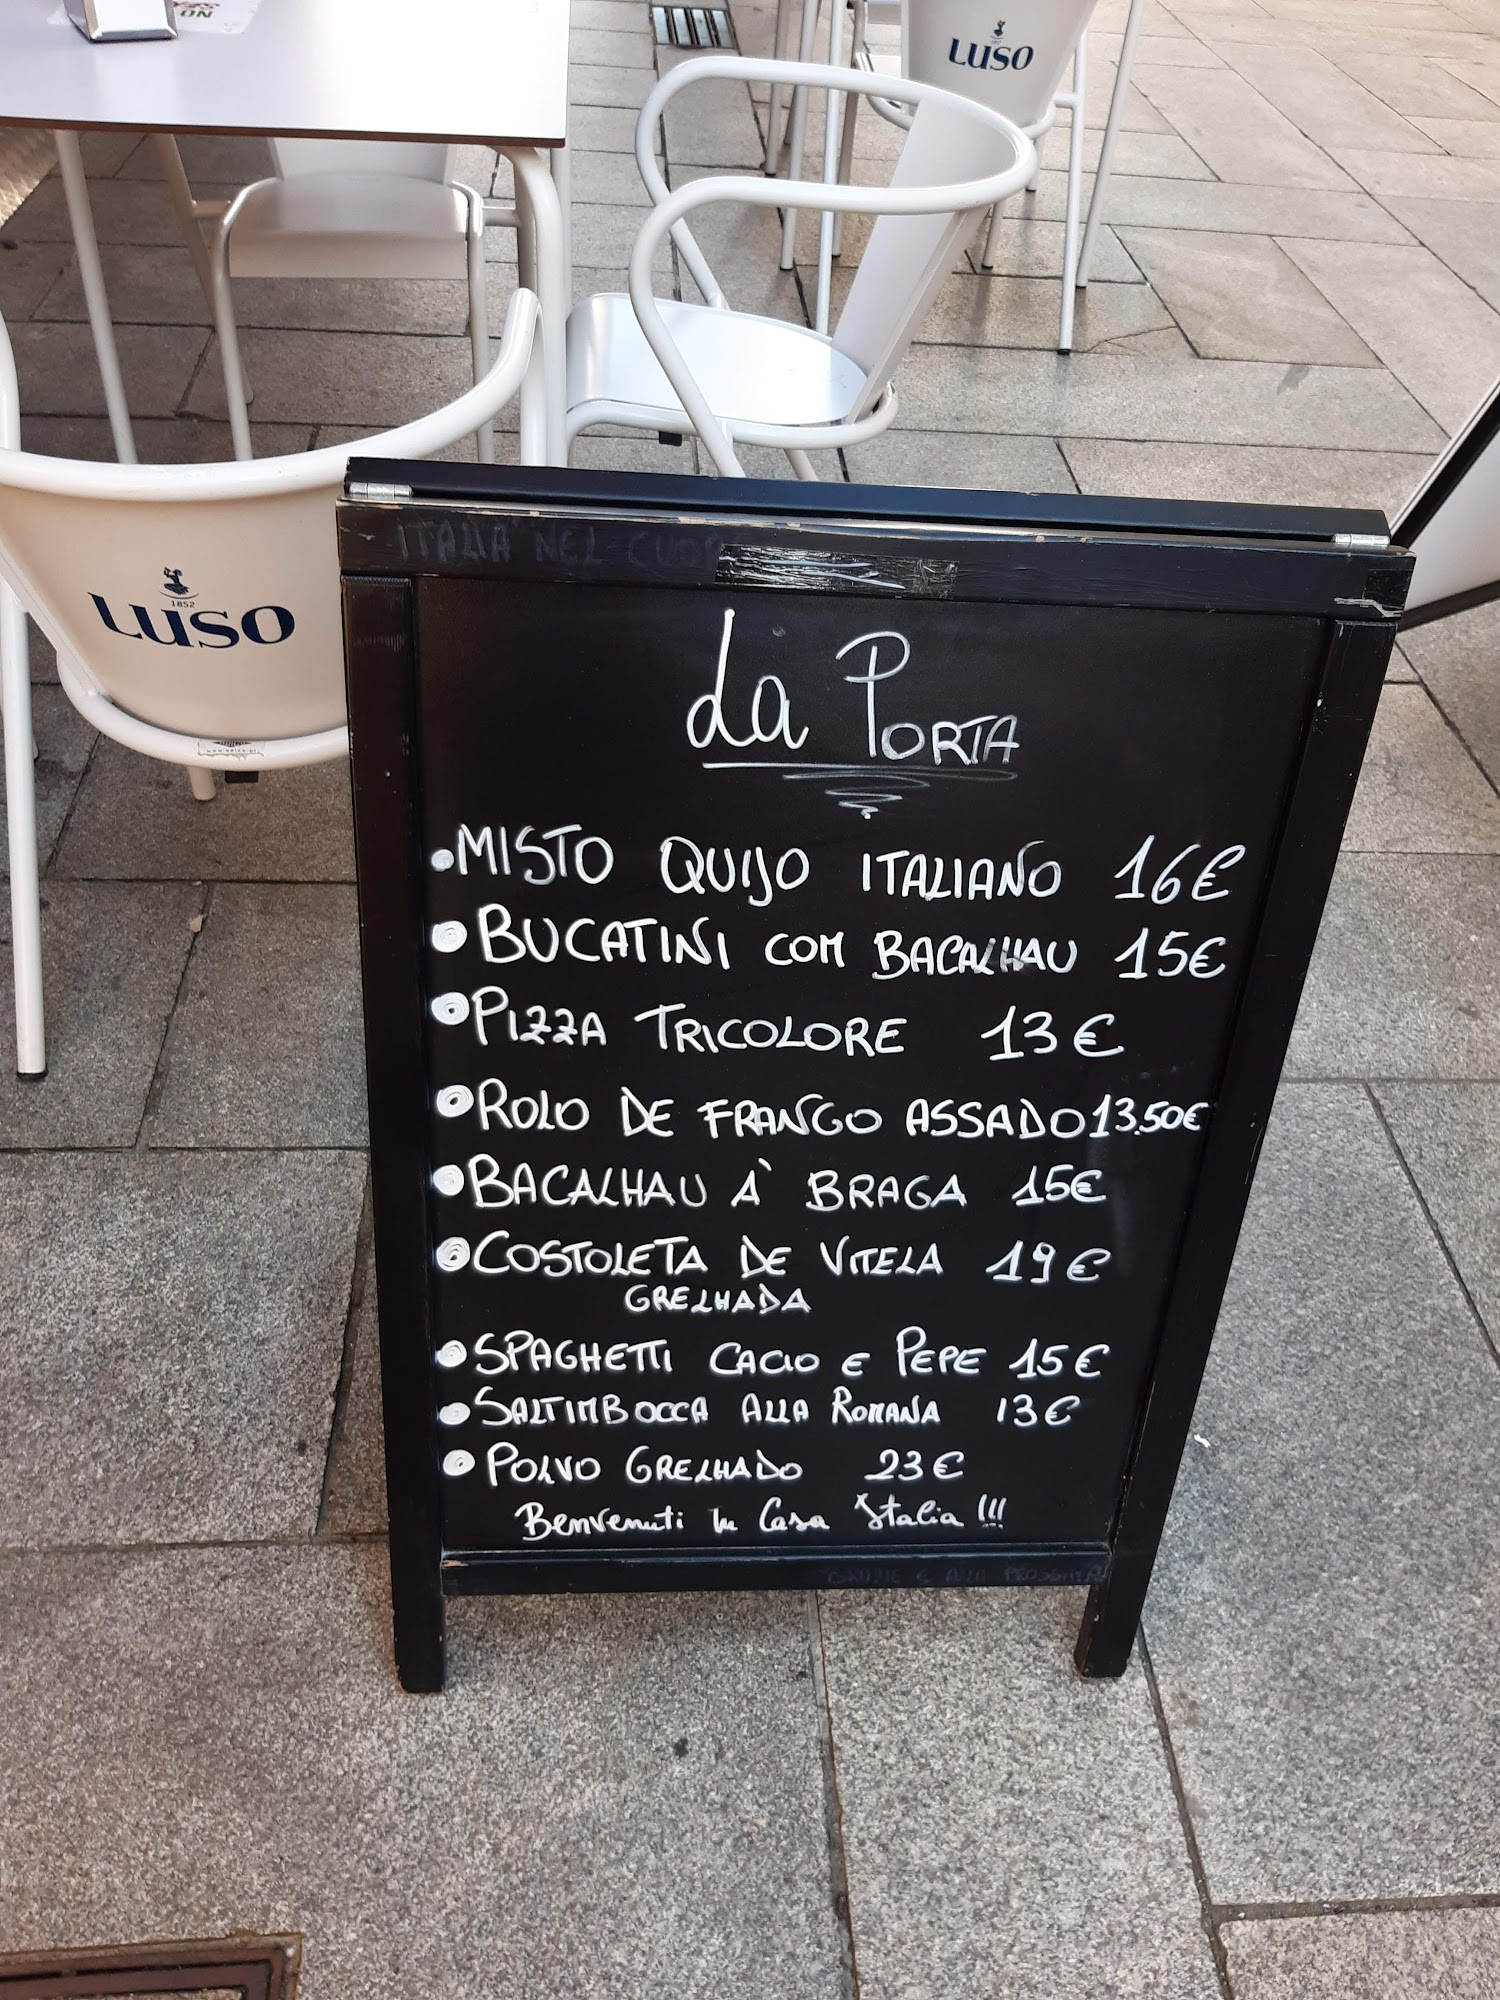 LUSO
LUSO
1852
ITALIA NEL CUOR
La PORTA
MISTO QUIJO ITALIANO 16€
BUCATINI COM BACALHAU 15€
PIZZA TRICOLORE 13€
ROLO DE FRANGO ASSADO 13.50€
BACALHAU À BRAGA 15€
COSTOLETA DE VITELA 19€
GRELHADA
SPAGHETTI CACIO E PEPE 15€
SALTIMBOCCA ALLA ROMANA 13€
POLVO GRELHADO 23€
Benvenuti in Casa Italia !!!
GRAZIE E ALLA PROSSIMA